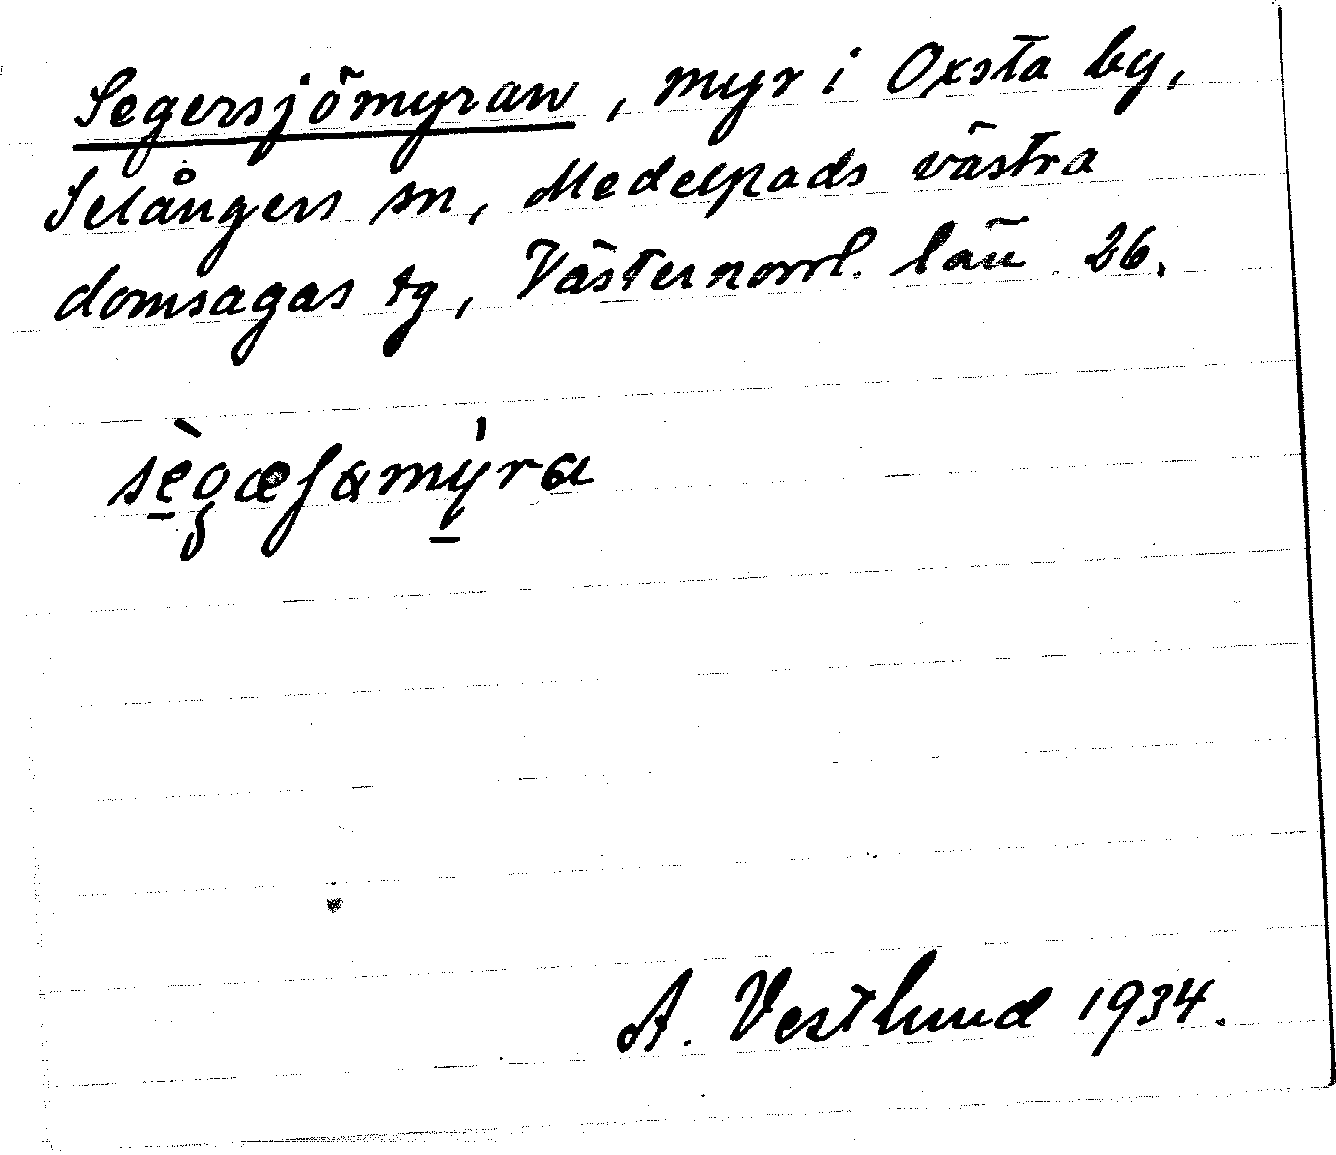 Segersjömyran, myr i Oxsta by,
Selångers sn, Medelpads västra
domsagas tg, Västernorrl. län 26.
A. Vestlund 1934.